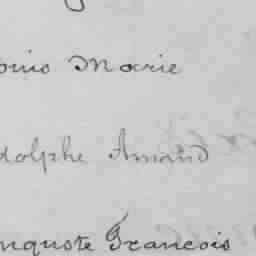 ouis Marie
dolphe Amand
uguste Francois